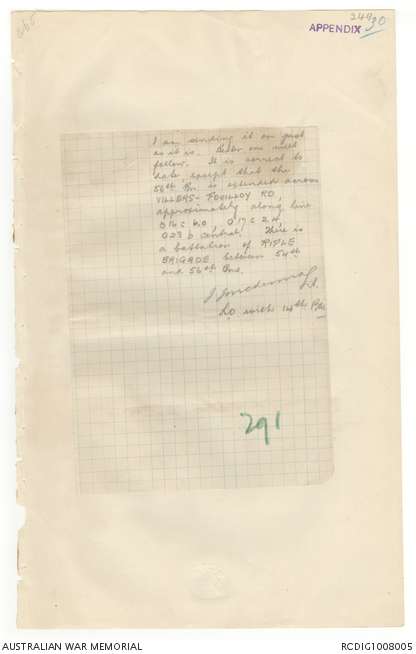 2490
APPENDIX 30
I am sending it on just
as it is. Better one will
follow. It is correct to
date except that the
56th Bn is extended across
VILLERS - FOUILLOY RD
approximately along line
O16c 6.0 O17c 2.4
O23 b central. There is
a battalion of RIFLE
BRIGADE between 54th
and 56th Bns.
Lt.
LO with 14th Bde
291
AUSTRALIAN WAR MEMORIAL
RCDIG1008005